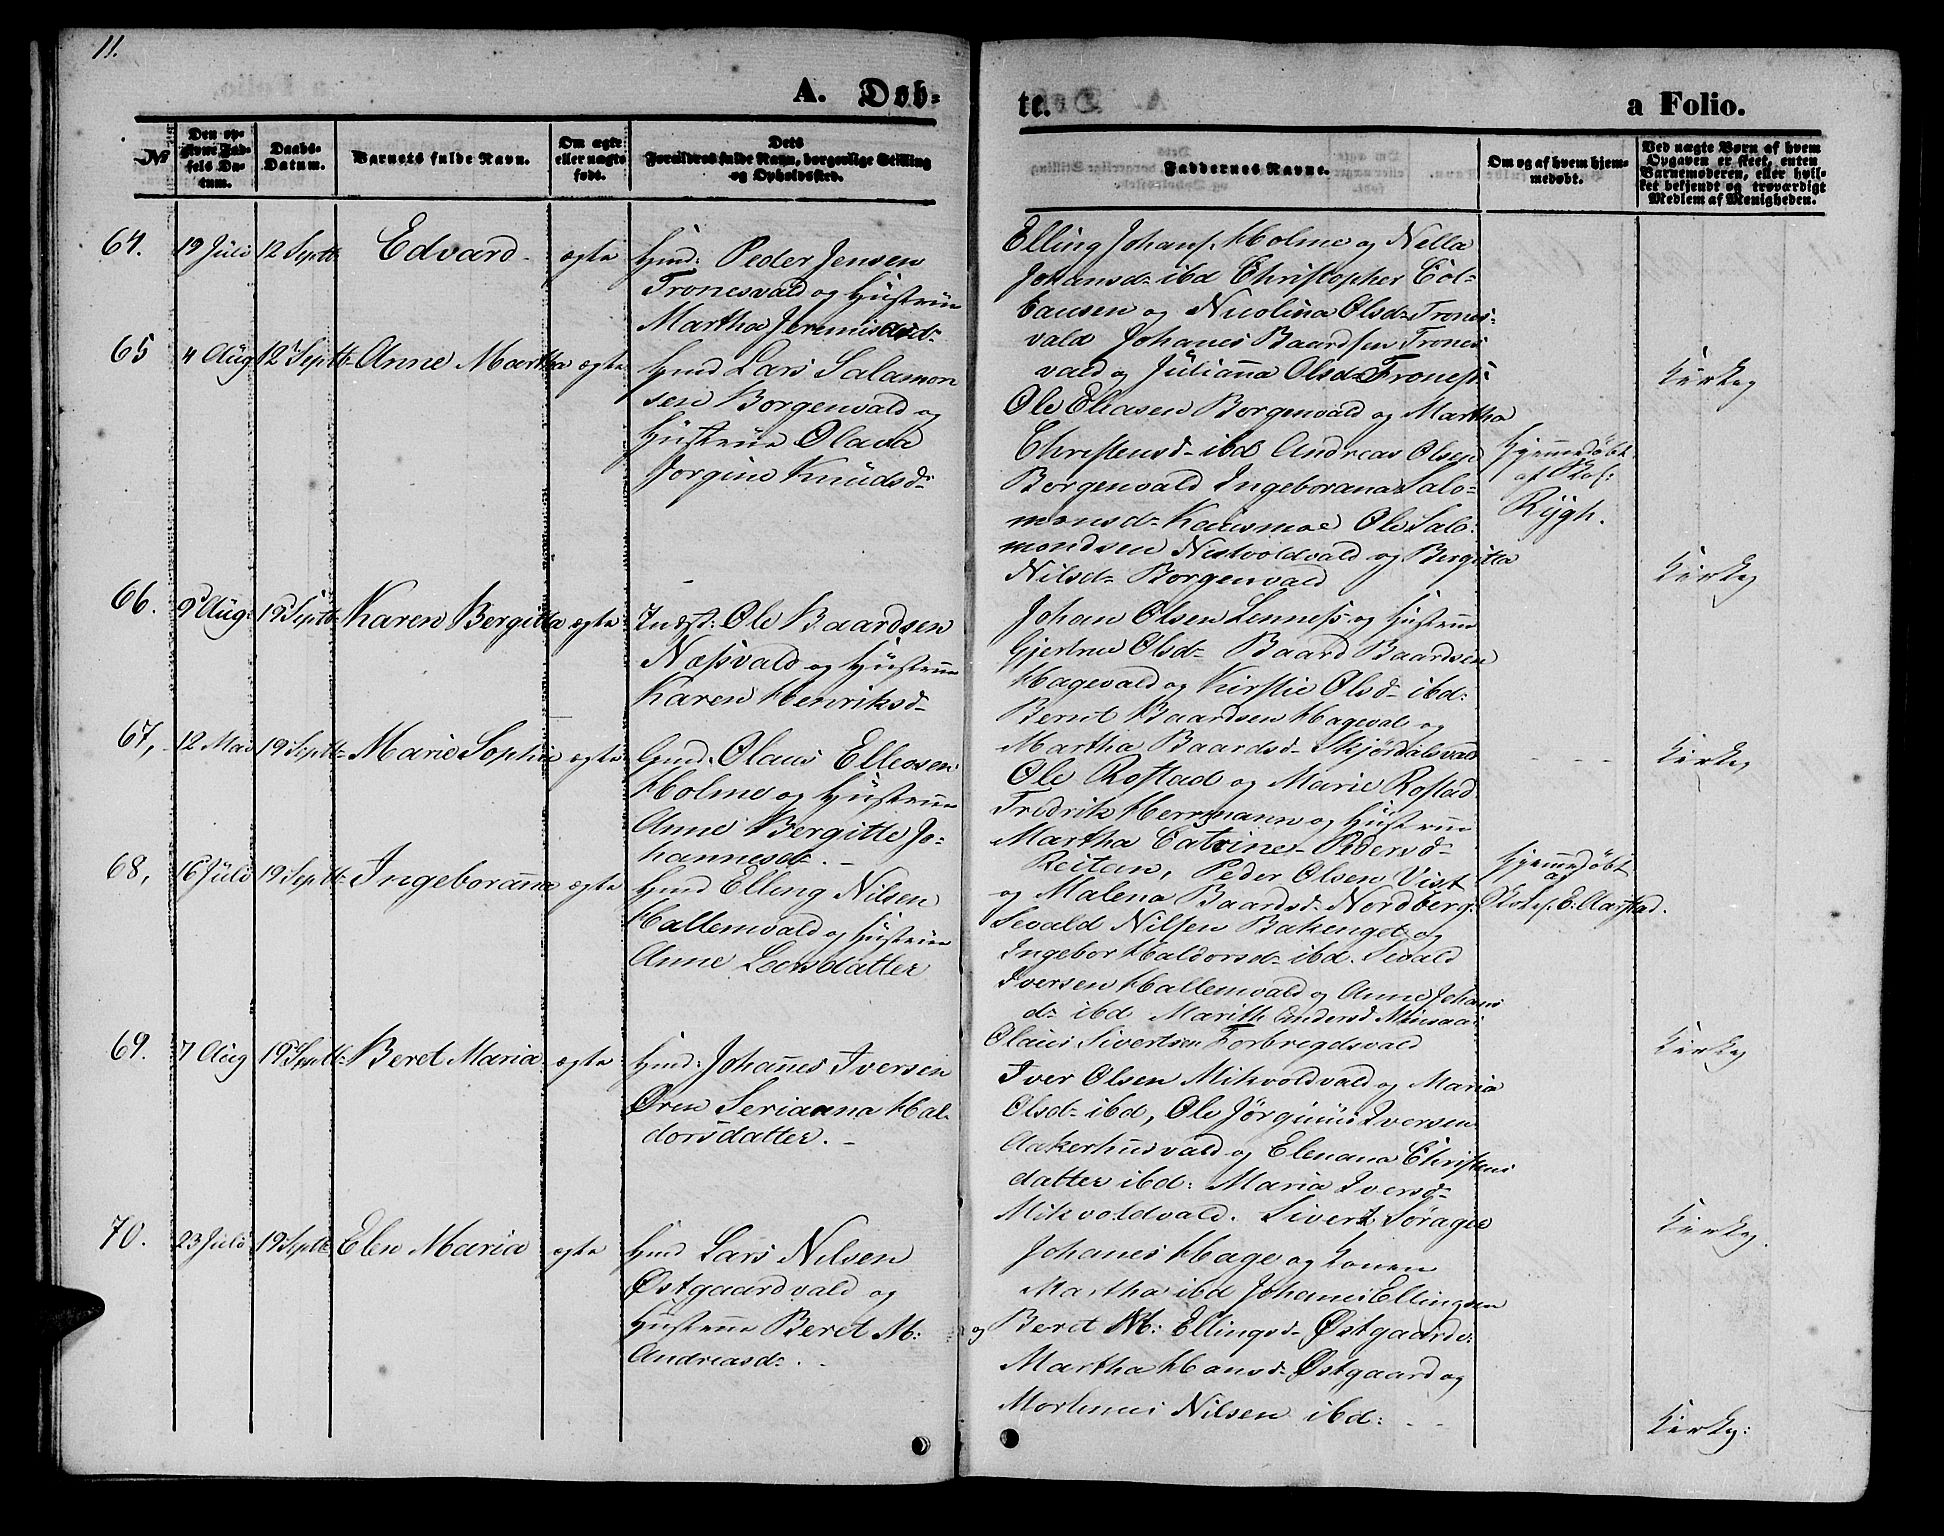 11.
A. Døb=
te.
a Folio.
№
Den op=
givne Fød=
sels Da=
tum.
Daabs=
Datum.
Barnets fulde Navn.
Om ægte
eller uægte
født.
Dets
Forældres fulde Navn, borgerlige Stilling
og Opholdssted.
Faddernes Navne.
Om og af hvem hjem=
medøbt.
Ved uægte Børn af hvem
Opgaven er skeet, enten
Barnemoderen, eller hvil=
ket bekjendt og troværdigt
Medlem af Menigheden.
64. 19 Juli 12 Septb Edvard ægte
Hmd: Peder Jensen
Tronesvald og Hustrue
Martha Jeremiasd=
Elling Johans. Holme og Nella
Johansd= ibd Christopher Col=
bausen og Nicolina Olsd= Trones=
vald Johanes Baardsen Trones
vald og Julianna Olsd= Troness:
Kirkeg
65 4 Aug 12 Septb= Anne Martha ægte
Hmd Lars Salamon
sen Borgenvald og
Hustrue Olava
Jorgine Knudsd=
Ole Eliasen Borgenvald og Martha
Christensd= ibd Andreas Olsen
Borgenvald Ingeborana Salo=
monsd= Kausmoe Ole Salo
mondsen Nestvoldvald og Bergitta
Nilsd= Borgenvald
Hjemmedøbt
af Skol:
Rygh.
Kirkeg
66. 9 Aug: 19 Septb= Karen Bergitta ægte
Indst: Ole Baardsen
Næssvald og Hustrue
Karen Henriksd=
Johan Olsen Lenness og Hustrue
Gjertrue Olsd= Baard Baardsen
Hagevald og Kirstie Olsd= ibd:
Bernt Baardsen Hageval og
Martha Baardsd= Skjørdalsvald
Kirkeg
67, 12 Mai 19 Septb= Marie Sophie ægte
Gmd: Olaus Elleosen
Holme og Hustrue
Anne Bergitte Jo=
hannesd=. –
Ole Rostad og Marie Rostad
Fredrik Herrmann og Hustrue
Martha Catrine Pedersd=
Reitan, Peder Olsen Vist
og Malena Baardsd= Nordberg:
68, 16 Juli 19 Septb= Ingeboranna ægte
Hmd Elling Nilsen
Hallemvald og Hustrue
Anne Larsdatter
Sevald Nilsen Bakenget og
Ingebor Haldorsd= ibd. Sivald
Iversen Hallemvald og Anne Johans
d= ibd Marith Endersd Minsaas
Olaus Sivertsen Forbregdsvald
Hjemmedøbt
af
Skol. E. Aarstad.
Kirkeg
69. 7 Aug 19 Septb= Beret Maria ægte
Hmd: Johannes Iversen
Øren Serianna Hal=
dorsdatter. –
Iver Olsen Mikvoldvald og Maria
Olsd= ibd, Ole Jørginus Iversen
Aakerhusvald og Elenana Christens
datter ibd: Maria Iversd=
Mikvoldvald. Sivert Søragie
Kirkeg.
70. 23 Juli 19 Septb Elen Maria ægte
Hmd Lars Nilsen
Østgaardvald og
Hustrue Beret M:
Andreasd=. –
Johanes Hage og Konen
Martha ibd Johanes Ellingsen
og Beret M: Ellingsd= Østgaardv:
Martha Hansd= Østgaard og
Mortinus Nilsen ibd: – –
Kirkeg: